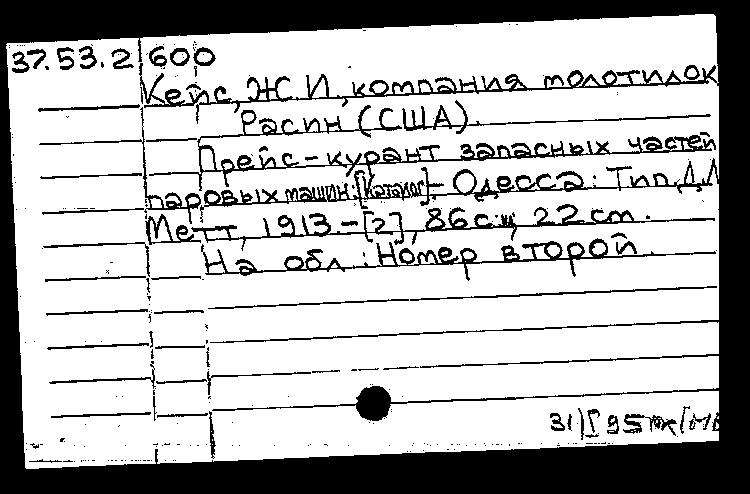 37.53.2 600
Кейс, Ж.И., компания молотилок
Расин (США).
Прейс-курант запасных частей
паровых машин: [Каталог]. - Одесса: Тип. Д.Л
Метт, 1913. - [2], 86 с., 22 cm.
На обл.: Номер второй.
31)I 95